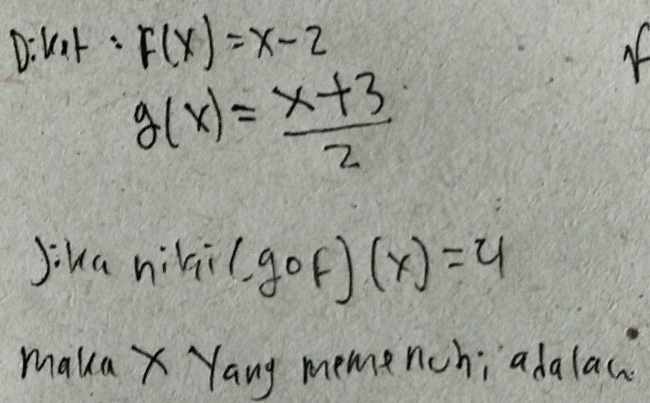 Diket : F(x) = x - 2
g(x) = x+3
2
Jika nilai (gof) (x) = 4
maka x Yang memenuhi adalah